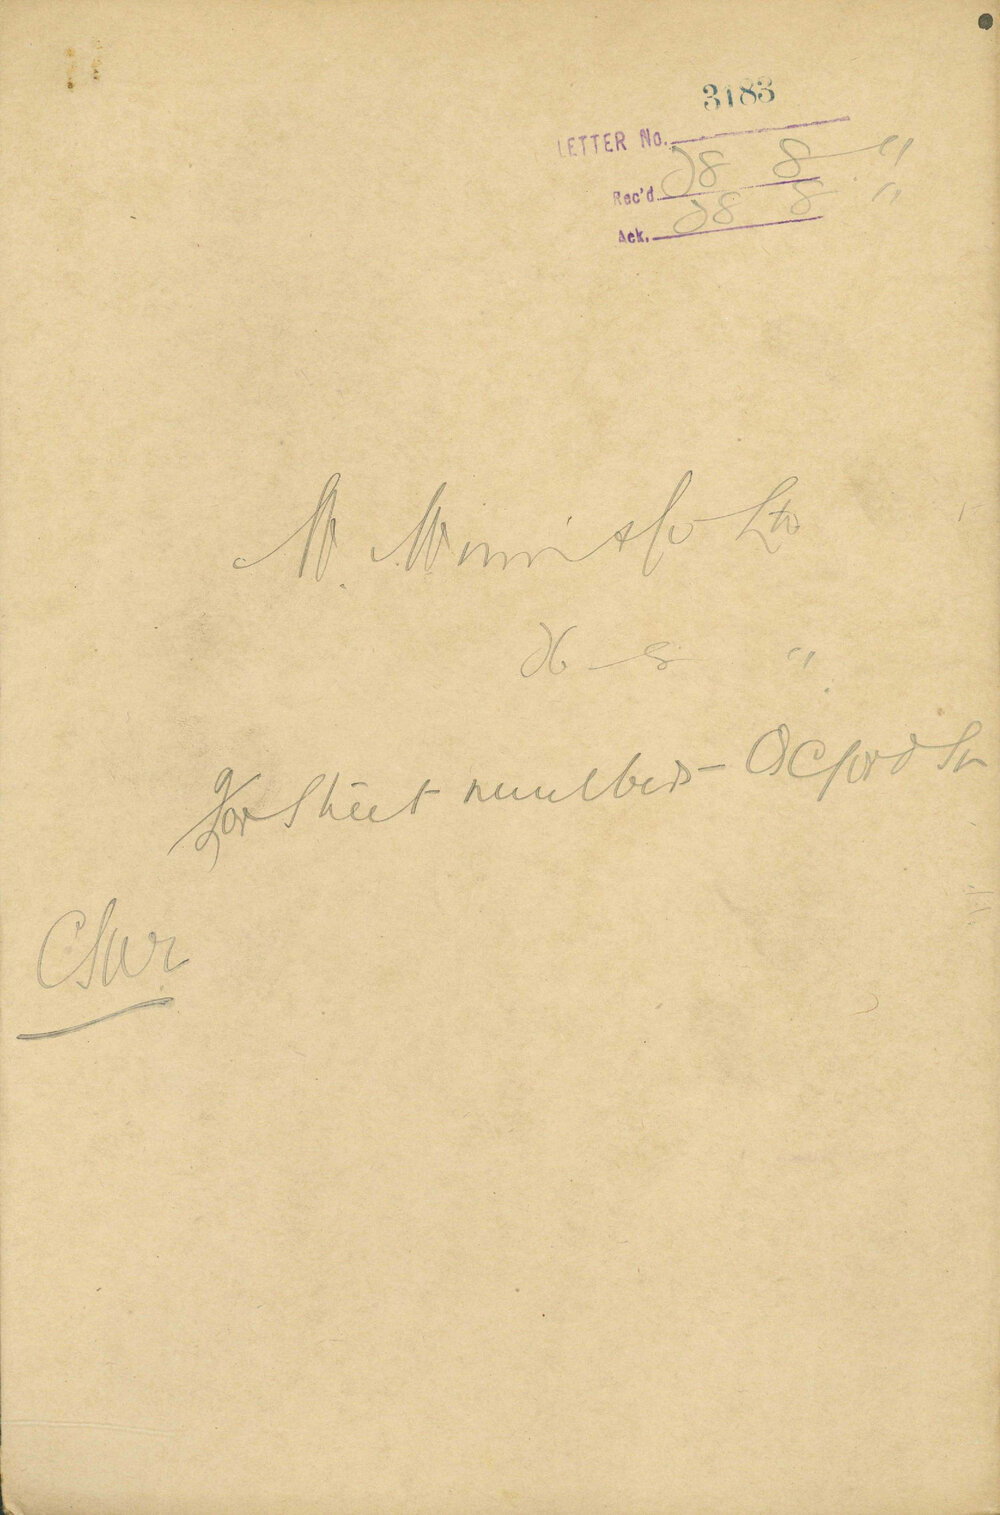 3183
LETTER No.
Rec'd 28 8 11
Ack. 28 8 11
W. Winn & Co Ltd
26 8 11
For Street numbers - Oxford St